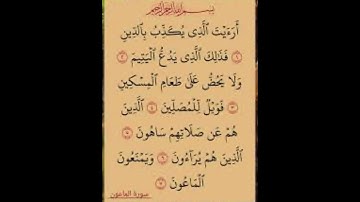 بِسْمِ ٱللَّهِ ٱلرَّحْمَٰنِ ٱلرَّحِيمِ
أَرَءَيْتَ ٱلَّذِى يُكَذِّبُ بِٱلدِّينِ
١ فَذَٰلِكَ ٱلَّذِى يَدُعُّ ٱلْيَتِيمَ ٢
وَلَا يَحُضُّ عَلَىٰ طَعَامِ ٱلْمِسْكِينِ
٣ فَوَيْلٌ لِّلْمُصَلِّينَ ٤ ٱلَّذِينَ
هُمْ عَن صَلَاتِهِمْ سَاهُونَ ٥
ٱلَّذِينَ هُمْ يُرَآءُونَ ٦ وَيَمْنَعُونَ
ٱلْمَاعُونَ ٧
سورة الماعون